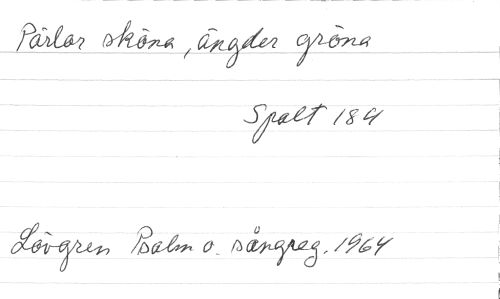 Pärlor sköna, ängder gröna
Spalt 184
Lövgren Psalm o. sångreg. 1964